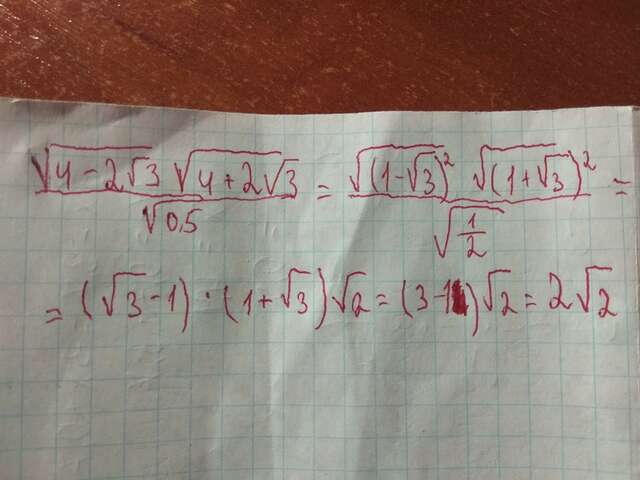 √(4-2√3) √(4+2√3) / √0,5 = √(1-√3)² √(1+√3)² / √(1/2) =
= (√3-1)·(1+√3)√2 = (3-1)√2 = 2√2